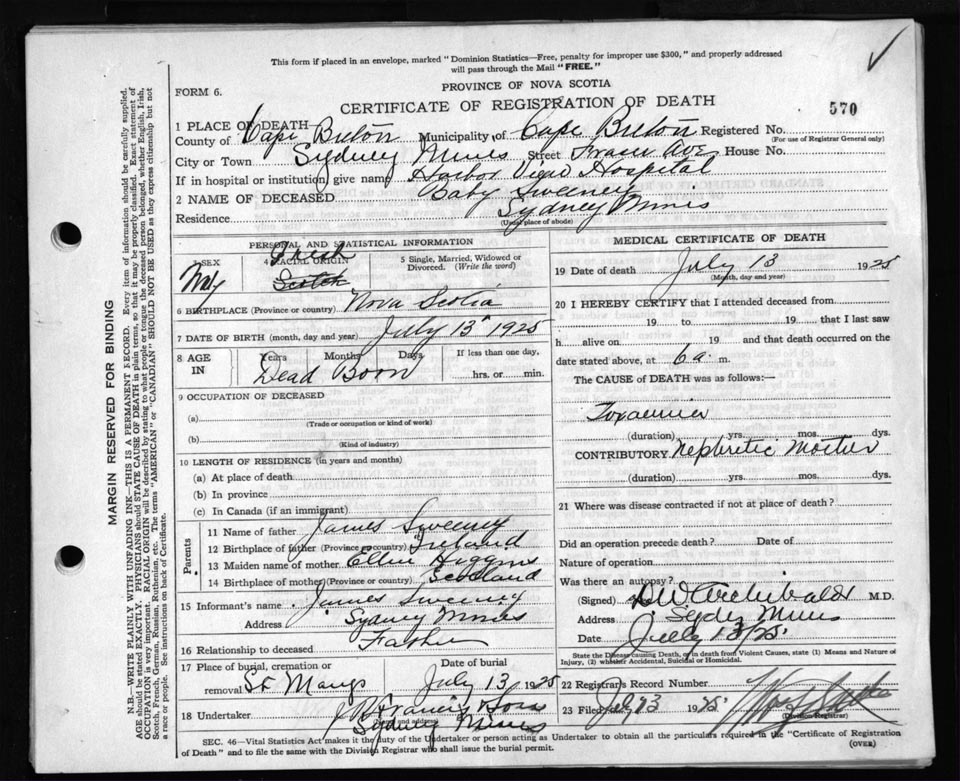 This form if placed in an envelope, marked "Dominion Statistics—Free, penalty for improper use $300," and properly addressed
will pass through the Mail "FREE."
PROVINCE OF NOVA SCOTIA
FORM 6.
CERTIFICATE OF REGISTRATION OF DEATH
570
1 PLACE OF DEATH
County of Cape Breton Municipality of Cape Breton Registered No.
(For use of Registrar General only)
City or Town Sydney Mines Street Fraser Ave House No.
If in hospital or institution, give name Harbor View Hospital
2 NAME OF DECEASED Baby Sweeney
Residence Sydney Mines
(Usual place of abode)
PERSONAL AND STATISTICAL INFORMATION
3 SEX 4 RACIAL ORIGIN 5 Single, Married, Widowed or Divorced. (Write the word)
Irish
Scotch
6 BIRTHPLACE (Province or country) Nova Scotia
7 DATE OF BIRTH (month, day and year) July 13 1925
8 AGE IN Years Months Days If less than one day, hrs. or min.
Dead Born
9 OCCUPATION OF DECEASED
(a)
(Trade or occupation or kind of work)
(b)
(Kind of industry)
10 LENGTH OF RESIDENCE (in years and months)
(a) At place of death
(b) In province
(c) In Canada (if an immigrant)
Parents
11 Name of father James Sweeney
12 Birthplace of father (Province or country) Ireland
13 Maiden name of mother Ellen Higgins
14 Birthplace of mother (Province or country) Scotland
15 Informant's name James Sweeney
Address Sydney Mines
16 Relationship to deceased Father
17 Place of burial, cremation or removal St Marys Date of burial July 13 1925
18 Undertaker Francis Sons
Name and address
Sydney Mines
MEDICAL CERTIFICATE OF DEATH
19 Date of death July 13 1925
(Month, day and year)
20 I HEREBY CERTIFY that I attended deceased from
19 to 19 that I last saw
h alive on 19 and that death occurred on the
date stated above, at 6 a. m.
The CAUSE of DEATH was as follows:—
Toxaemia
(duration) yrs. mos. dys.
CONTRIBUTORY Nephritic Mother
(duration) yrs. mos. dys.
21 Where was disease contracted if not at place of death?
Did an operation precede death? Date of
Nature of operation
Was there an autopsy?
(Signed) DW Archibald M.D.
Address Sydney Mines
Date July 13/25
State the Disease causing Death, or in death from Violent Causes, state (1) Means and Nature of
Injury, (2) whether Accidental, Suicidal or Homicidal.
22 Registrar's Record Number
23 Filed July 13 1925
(Division Registrar)
SEC. 46—Vital Statistics Act makes it the duty of the Undertaker or person acting as Undertaker to obtain all the particulars required in the "Certificate of Registration
of Death" and to file the same with the Division Registrar who shall issue the burial permit.
(OVER)
MARGIN RESERVED FOR BINDING
N.B.—WRITE PLAINLY WITH UNFADING INK—THIS IS A PERMANENT RECORD. Every item of information should be carefully supplied.
AGE should be stated EXACTLY. PHYSICIANS should STATE CAUSE OF DEATH in plain terms, so that it may be properly classified. Exact statement of
OCCUPATION is very important. RACIAL ORIGIN will be described by stating to what people or tongue the deceased person belonged, whether English, Irish,
Scotch, French, German, Russian, Ruthenian, etc. The terms "AMERICAN" or "CANADIAN" SHOULD NOT BE USED as they express citizenship but not
a race or people. See instructions on back of Certificate.